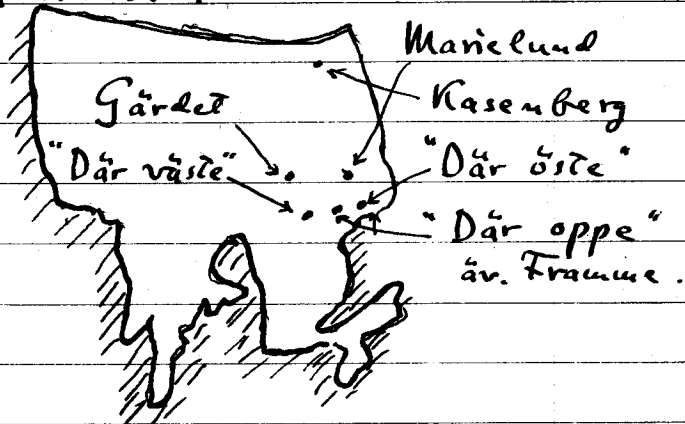 Marielund
Gärdet
Kasenberg
"Där väste"
"Där öste"
"Där oppe"
äv. Framme.